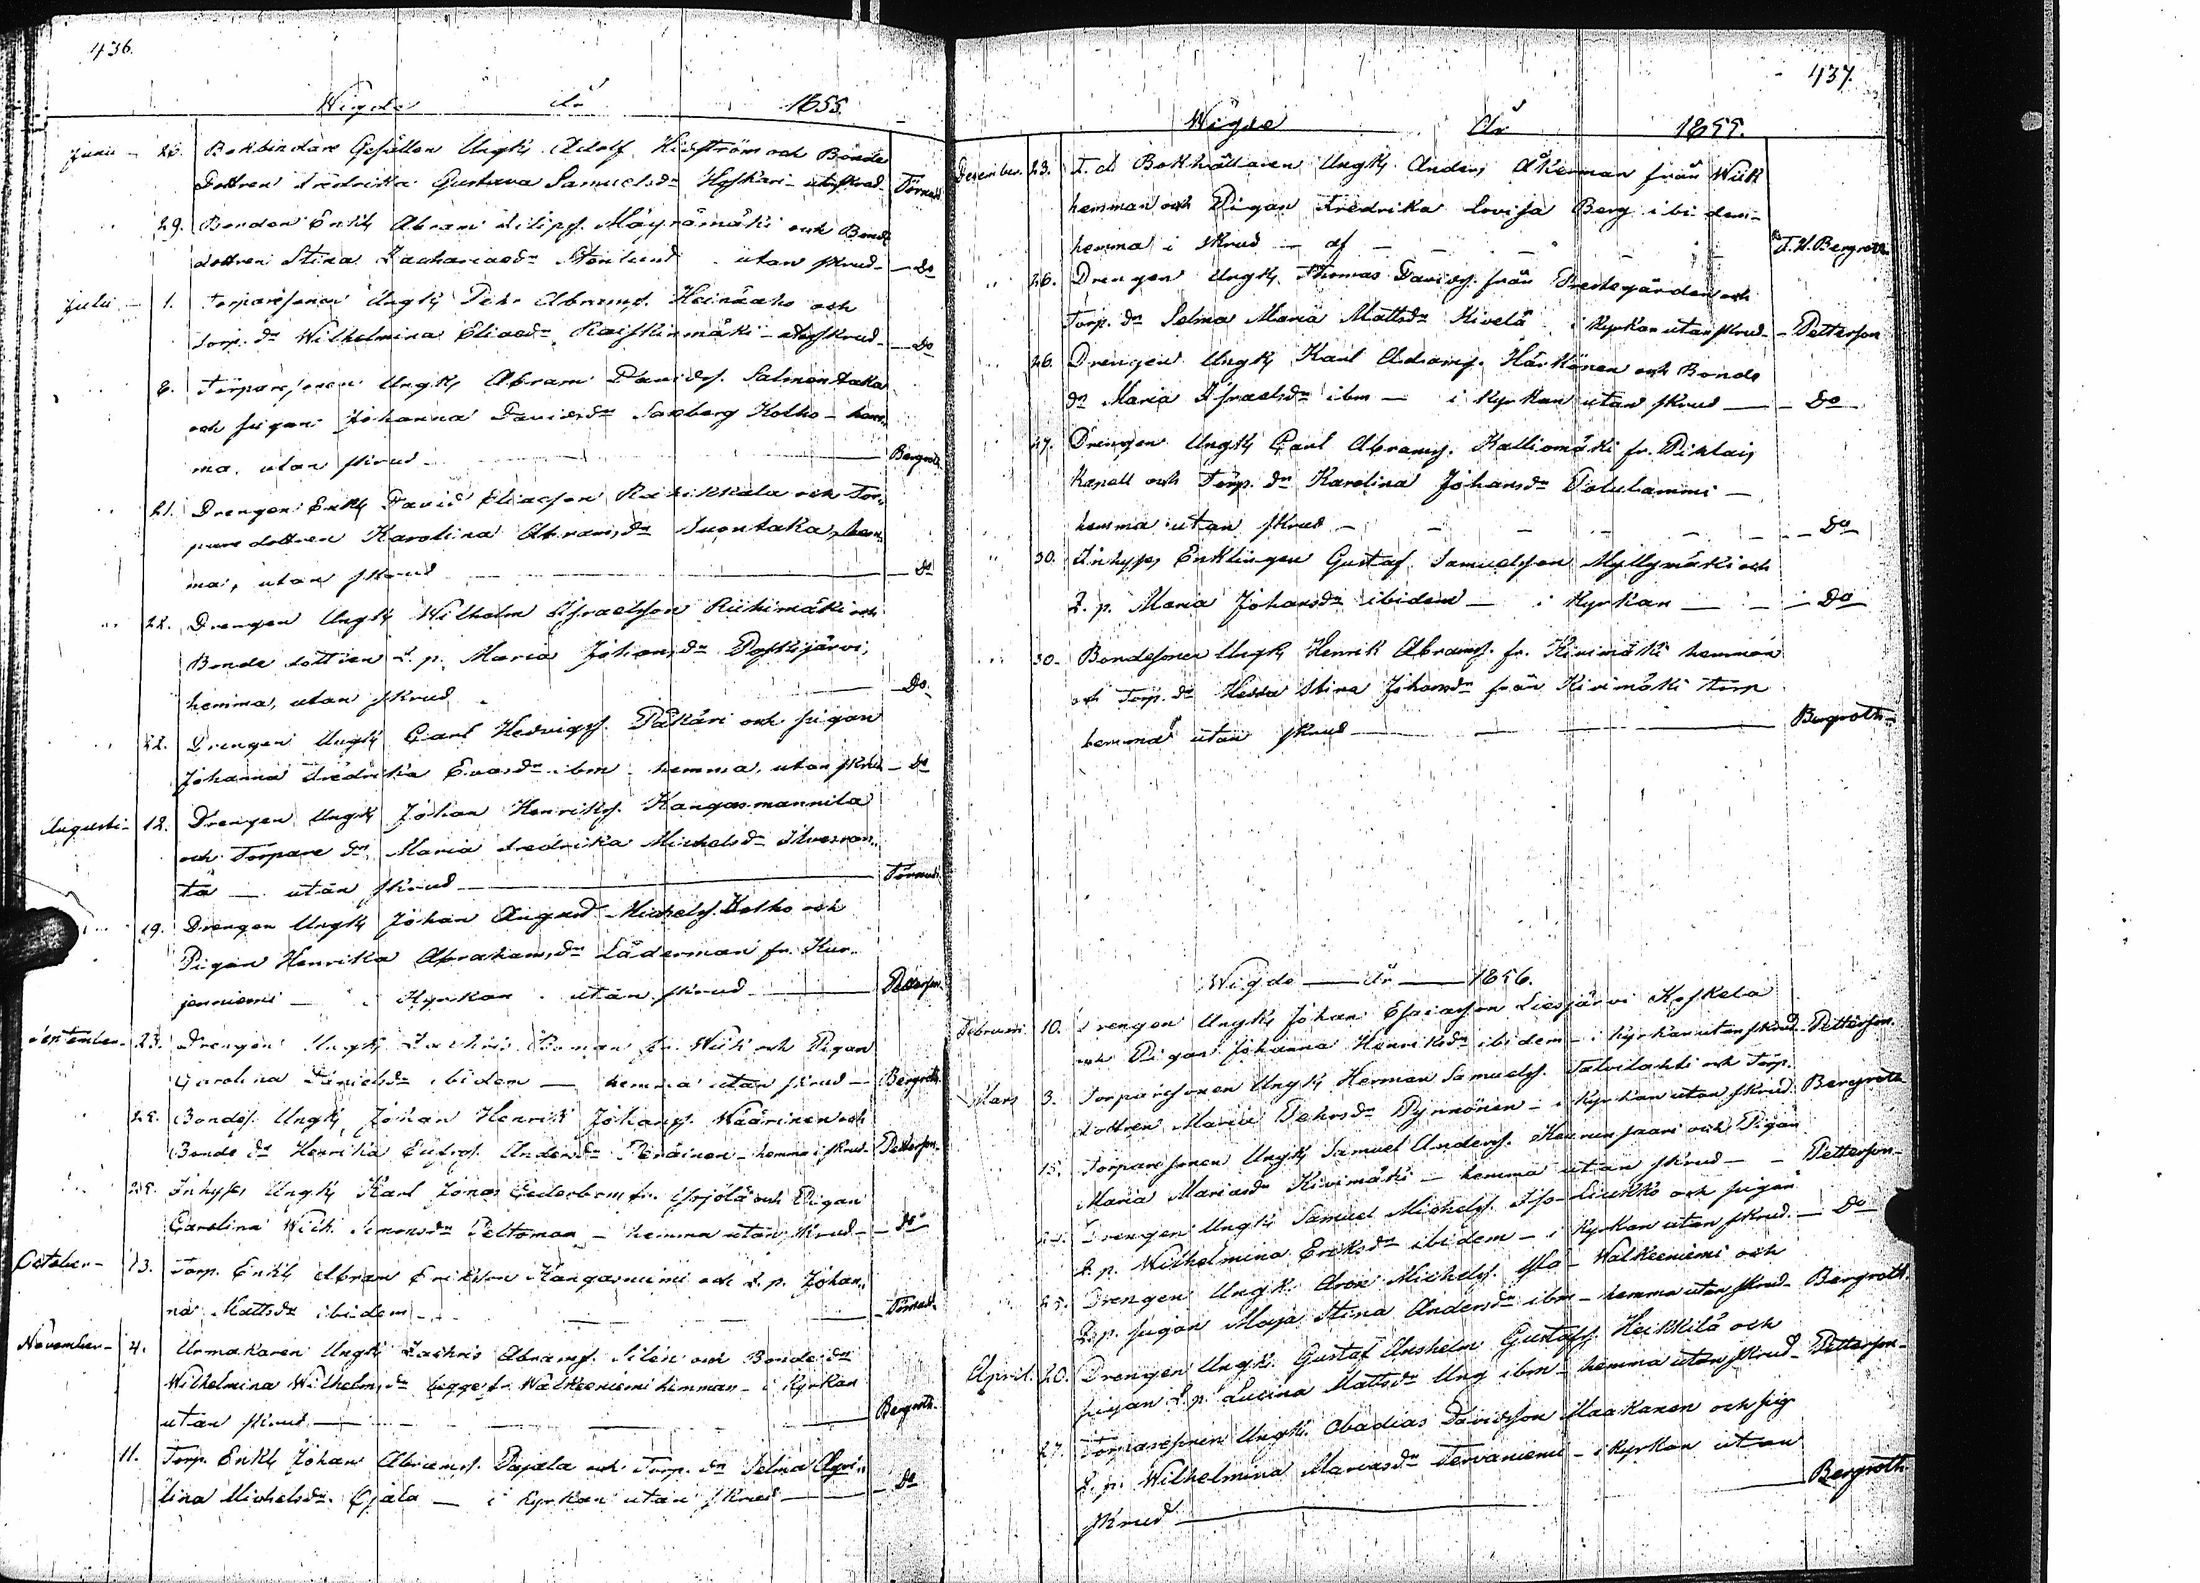 436.
Wigde År 1855.
Junii 25. Bokbindare Gesällen Ungk. Adolf och Bonde
dottren Fredrika Gustava Samuelsdr utan skrud Törnudd
29. Bonden Enkl. Abram Filipss. Mäyrämäki och Bonde
dottren Stina Zachariasdr Stenlund utan skrud Do
Julii 1. Torparesonen Ungk. Pehr Abramss. Heinäaho och
Torp. dr Wilhelmina Eliasdr Raiskinmäki utan skrud Do
8. Torparesonen Ungk. Abram Davidss. Salmentaka
och pigan Johanna Davidsdr Saxberg Kotko hem-
ma, utan skrud Bergroth
21. Drengen Enkl. David Eliasson och Tor-
pare dottren Karolina Abramsdr Suontaka, hem-
ma, utan skrud Do
22. Drengen Ungk. Wilhelm Israelsson Riihimäki och
Bonde dottren L. p. Maria Johansdr Poskijärvi,
hemma, utan skrud Do
22. Drengen Ungk. Carl Hedvigss. Påkäri och pigan
Johanna Fredrika Evasdr ibm hemma, utan skrud Do
Augusti 12. Drengen Ungk. Johan Henrikss. Kangasmannila
och Torpare dr Maria Fredrika Michelsdr Ilvesran-
ta utan skrud Törnudd
19. Drengen Ungk. Johan August Michelss. Kotko och
Pigan Henrika Abrahamsdr Läderman fr. Kur-
jenniemi i Kyrkan utan skrud Petterson
September 23. Drengen Ungk. Zachris Boman fr. Wiik och Pigan
Carolina Danielsdr ibidem hemma utan skrud Bergroth
25. Bondes. Ungk. Johan Henrik Johanss. Wäärinen och
Bonde dr Henrika Eufros. Andersdr Peräinen hemma i skrud Petterson
25. Inhyses Ungk. Karl Jonas Cederbom fr. Yrjölä och Pigan
Carolina Wilh. Simonsdr Peltoman hemma utan skrud Do
October 13. Torp. Enkl. Abram Eriksson Kangasniemi och L. p. Johan-
na Mattsdr ibidem Törnudd
November 4. Urmakaren Ungk. Zachris Abramss. Silén och Bonde dr
Wilhelmina Wilhelmsdr begge fr. Walkeeniemi hemman i Kyrkan
utan skrud Bergroth
11. Torp. Enkl. Johan Abramss. Pajala och Torp. dr Selma Aqvi-
lina Michelsdr Ojala i Kyrkan utan skrud Do
437.
Wigde År 1855.
December 23. F. d. Bokhållaren Ungk. Anders Åkerman från Wiik
hemman och Pigan Fredrika Lovisa Berg ibidem
hemma i skrud af F. W. Bergroth
26. Drengen Ungk. Thomas Davidss. från Prestegården och
Torp. dr Selma Maria Mattsdr Kivelä i Kyrkan utan skrud Petterson
26. Drengen Ungk. Karl Adamss. Härkönen och Bonde
dr Maria Israelsdr ibm i Kyrkan utan skrud Do
27. Drengen Ungk. Carl Abramss. Kalliomäki fr. Pihlais
Kapell och Torp. dr Karolina Johansdr Potulammi
hemma utan skrud Do
30. Inhyses Enklingen Gustaf Samuelsson Myllymäki och
L. p. Maria Johansdr ibidem i Kyrkan Do
30. Bondesonen Ungk. Henrik Abramss. fr. Kivimäki hemman
och Torp. dr Hedda Stina Johansdr från Kivimäki torp
hemma utan skrud Bergroth
Wigde År 1856.
Februari 10. Drengen Ungk. Johan Esaiasson Liesjärvi Koskela
och Pigan Johanna Henriksdr ibidem i Kyrkan utan skrud Petterson
Mars 3. Torparesonen Ungk. Herman Samuelss. Talvilahti och Torp.
dottren Maria Pehrsdr Pynnönen i Kyrkan utan skrud Bergroth
15. Torparesonen Ungk. Samuel Anderss. och Pigan
Maria Mariasdr Kivimäki hemma utan skrud Petterson
Drengen Ungk. Samuel Michelss. Iso-Liukko och pigan
L. p. Wilhelmina Eriksdr ibidem i Kyrkan utan skrud Do
25. Drengen Ungk. Aron Michelss. Walkeeniemi och
L. p. pigan Maja Stina Andersdr ibm hemma utan skrud Bergroth
April 20. Drengen Ungk. Gustaf Anshelm Gustafss. Heikkilä och
pigan L. p. Lucina Mattsdr Ung ibm hemma utan skrud Petterson
27. Torparesonen Ungk. Abadias Davidsson Maakanen och pig.
L. p. Wilhelmina Mariasdr Tervaniemi i Kyrkan utan
skrud Bergroth